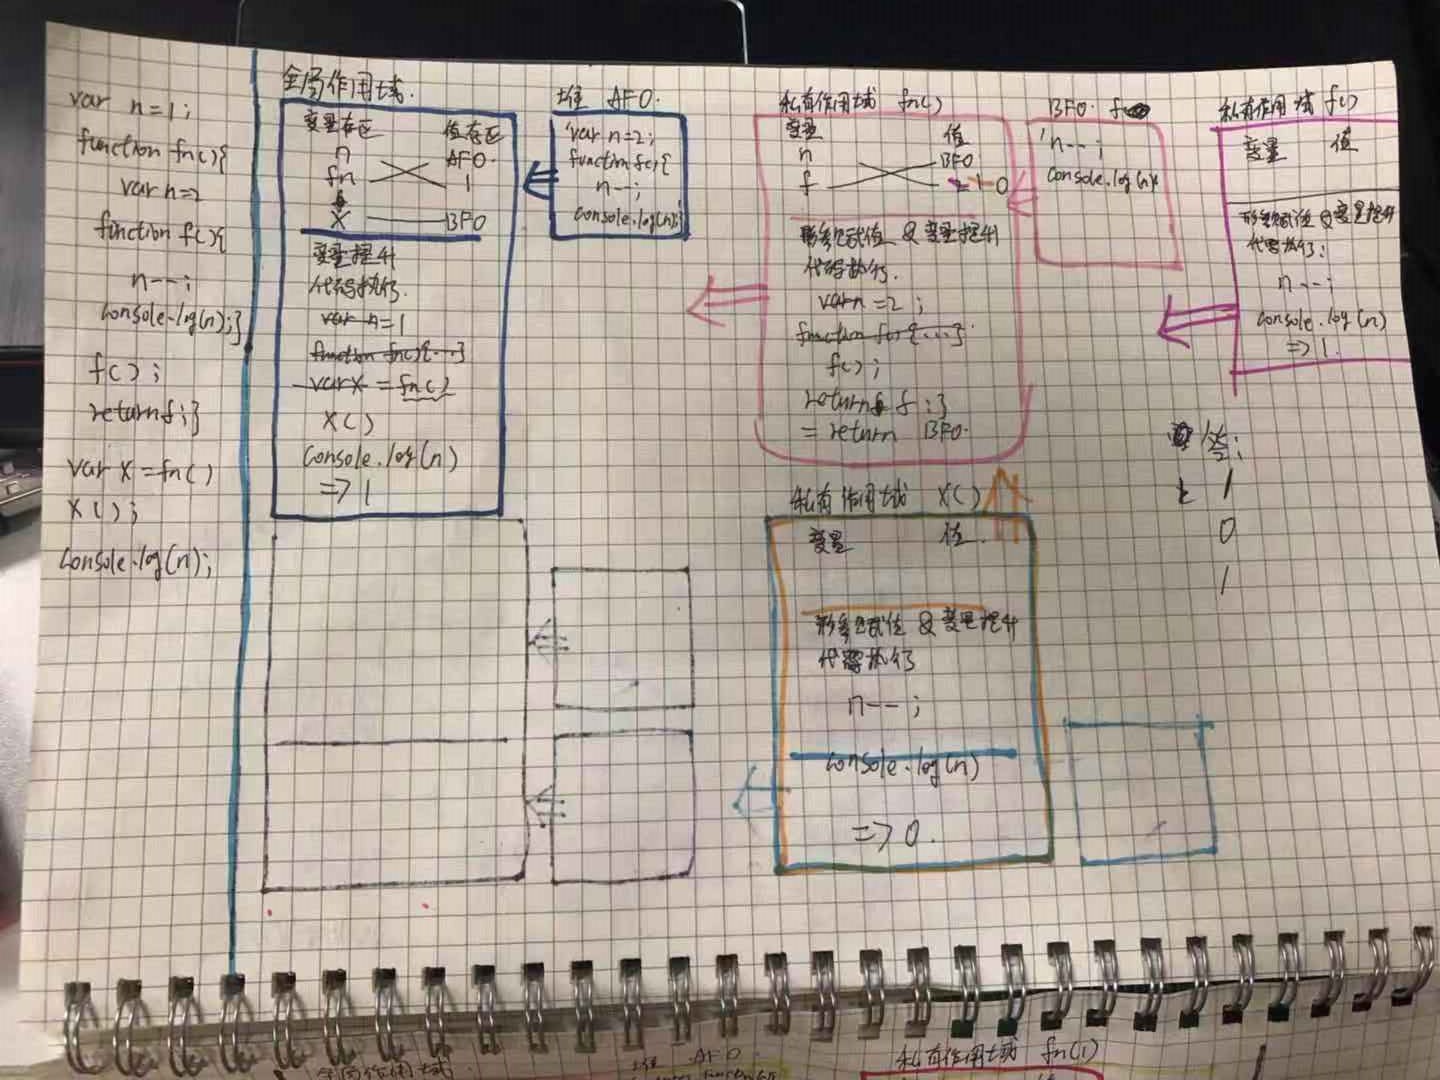 var n=1;
function fn(){
var n=2
function f(){
n--;
console.log(n);}
f();
return f;}
var x=fn()
x();
console.log(n);
全局作用域.
变量存区 值存区
n AFO.
fn 1
x BFO
变量提升
代码执行.
var n=1
function fn(){...}
var x = fn()
x()
console.log(n)
=> 1
堆 AFO.
'var n=2;
function f(){
n--;
console.log(n);}
私有作用域 fn()
变量 值
n BFO
f 2 1 0
形参赋值 & 变量提升
代码执行.
var n=2;
function f(){...}
f();
return f;}
= return BFO.
BFO. f
'n--;
console.log(n)'
私有作用域 f()
变量 值
形参赋值 & 变量提升
代码执行:
n--;
console.log(n)
=> 1.
答:
1
0
1
私有作用域 x()
变量 值.
形参赋值 & 变量提升
代码执行
n--;
console.log(n)
=> 0.
全局作用域.
堆 AFO
私有作用域 fn(1)